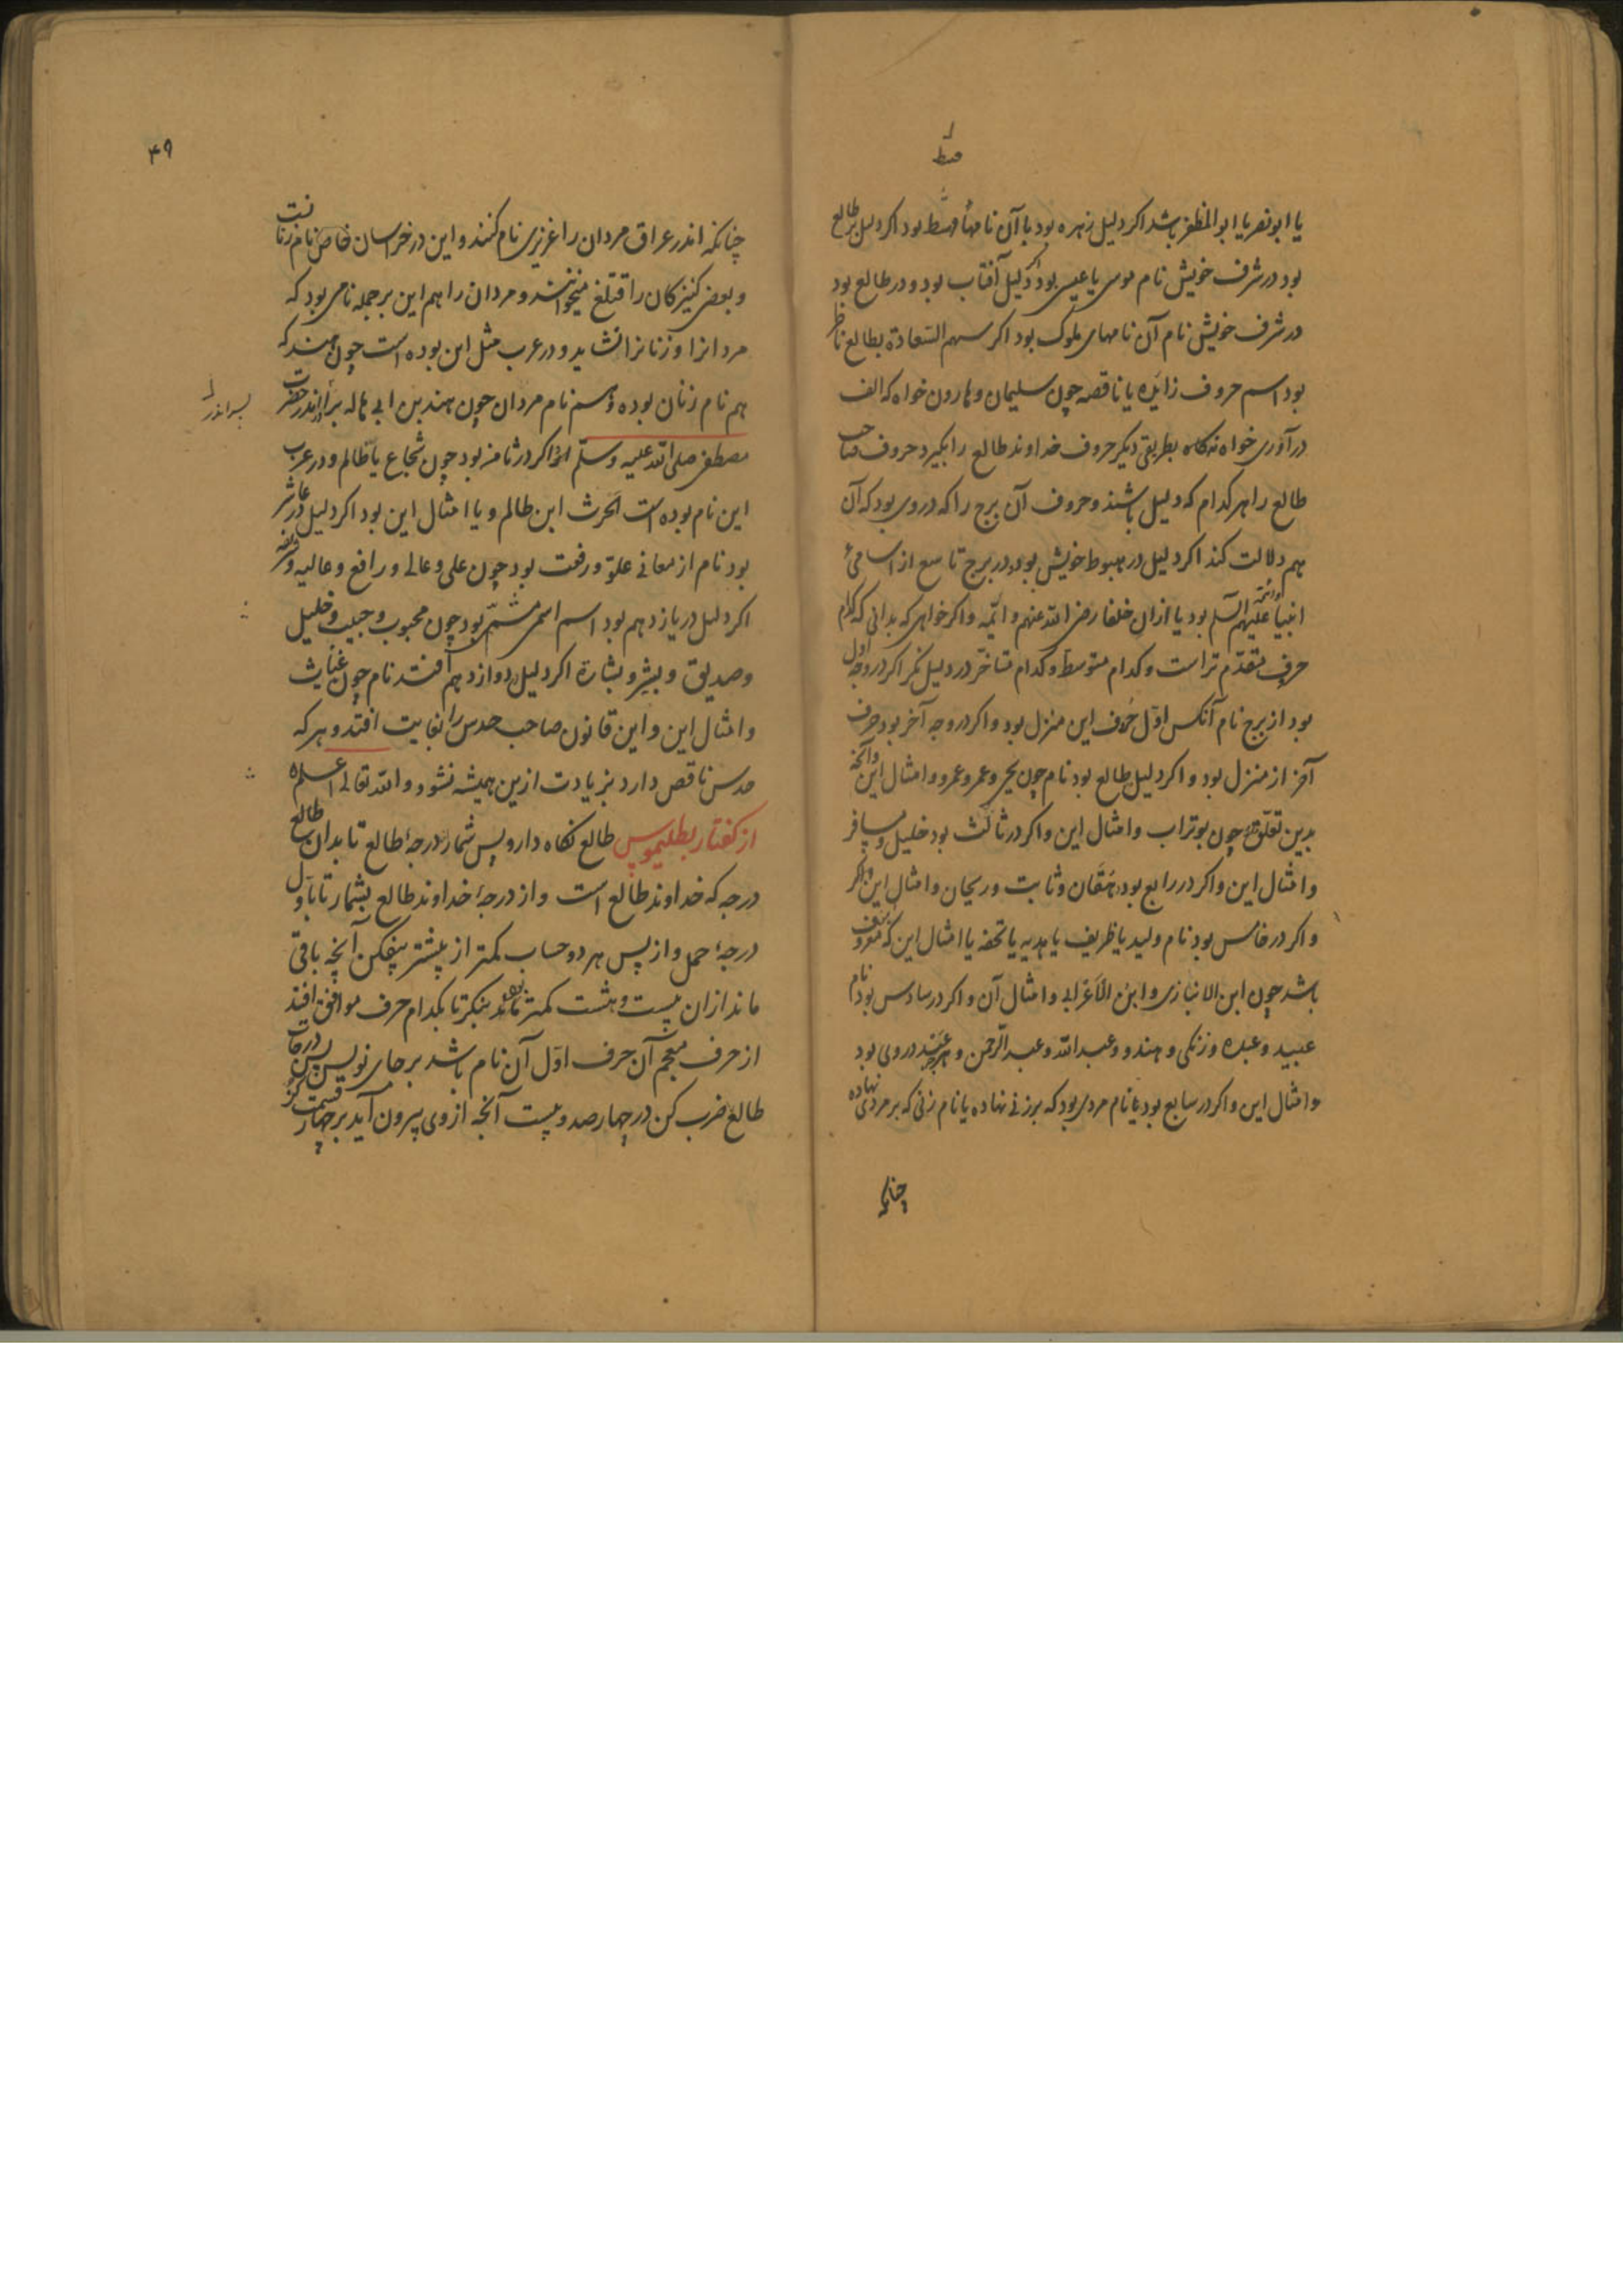 یا ابونصر یا ابوالمظفر باشد اکر دلیل زهره بود با آن نامها بود اکر دلیل طالع
بود در شرف خویش نام موسی یا عیسی بود اکر دلیل آفتاب بود و در طالع بود
در شرف خویش نام آن نامهای ملوک بود اکر سهم السعادة بطالع ناظر
بود اسم حروف زایده یا ناقصه چون سلیمان و هارون خواه که الف
در آوری خواه نه کاه بطریقی دیکر حروف خداوند طالع را بکیر و حروف صاحب
طالع را هر کدام که دلیل باشند و حروف آن برج را که در وی بود که آن
هم دلالت کند اکر دلیل در هبوط خویش بود و در برج تاسع از اسامی
انبیا علیهم السلم بود یا ازان خلفا رضی الله عنهم و ائمه و اکر خواهی که بدانی که کدام
حرف متقدم تر است و کدام متوسط و کدام متاخر در دلیل نکر اکر در وجه اول
بود از برج نام آنکس اول حرف این منزل بود و اکر در وجه آخر بود حرف
آخر از منزل بود و اکر دلیل بطالع بود نام چون یحیی و عمر و عمرو و امثال این و آنچه
بدین تعلق چون بوتراب و امثال این و اکر در ثالث بود خلیل و مسافر
و امثال این و اکر در رابع بود دهقان و ثابت و ریحان و امثال این
و اکر در خامس بود نام ولید یا ظریف یا هدیه یا تحفه یا امثال این که معروف
باشد چون ابن الانبازی و ابن الاعرابی و امثال آن و اکر در سادس بود نام
عبید و عبده و زنکی و هندو و عبدالله و عبدالرحمن و هرچه در وی بود
و امثال این و اکر در سابع بود یا نام مردی بود که بر زنی نهاده یا نام زنی که بر مردی نهاده
چنانکه
۴۹
چنانکه اندر عراق مردان را عزیزی نام کنند و این در خراسان خاص نام زنانست
و بعضی کنیزکان را قتلغ میخوانند و مردان را هم این بر جمله نامی بود که
مردانرا و زنانرا شاید و در عرب مثل این بوده است چون هند که
هم نام زنان بوده و هم نام مردان چون هند بن ابی هاله حضرت
مصطفی صلی الله علیه وسلم اکر در ثامن بود چون شجاع یا ظالم و در عرب
این نام بوده است الحرث ابن ظالم و یا امثال این بود اکر دلیل در عاشر
بود نام از معانی علو و رفعت بود چون علی و عالی و رافع و عالیه
اکر دلیل در یازدهم بود اسم اسمی بود چون محبوب و حبیب و خلیل
و صدیق و بشیر و بشارة اکر دلیل دوازدهم افتد نام چون غیاث
و امثال این و این قانون صاحب حدس را بغایت افتد و هر که
حدس ناقص دارد بزیادت ازین همیشه نشود و الله تعالی اعلم
از کفتار بطلیموس طالع نکاه دار و پس شمار درجهٔ طالع تا بدان طالع
درجه که خداوند طالع است و از درجهٔ خداوند طالع بشمار تا باول
درجهٔ حمل و از پس هر دو حساب کمتر از بیشتر بیفکن آنچه باقی
ماند ازان بیست و هشت کمتر ماند بنکر تا بکدام حرف موافق افتد
از حرف معجم آن حرف اول آن نام باشد بر جای نویس پس درجات
طالع ضرب کن در چهارصد و بیست آنچه از وی بیرون آید بر چهار قسمت کن